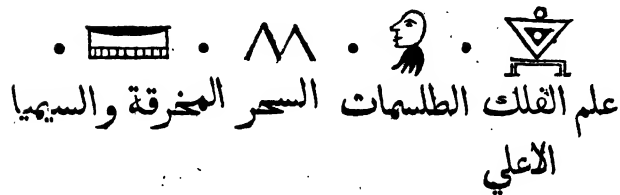 علم الفلك الطلسمات السحر المخرقة والسيميا
الاعلي